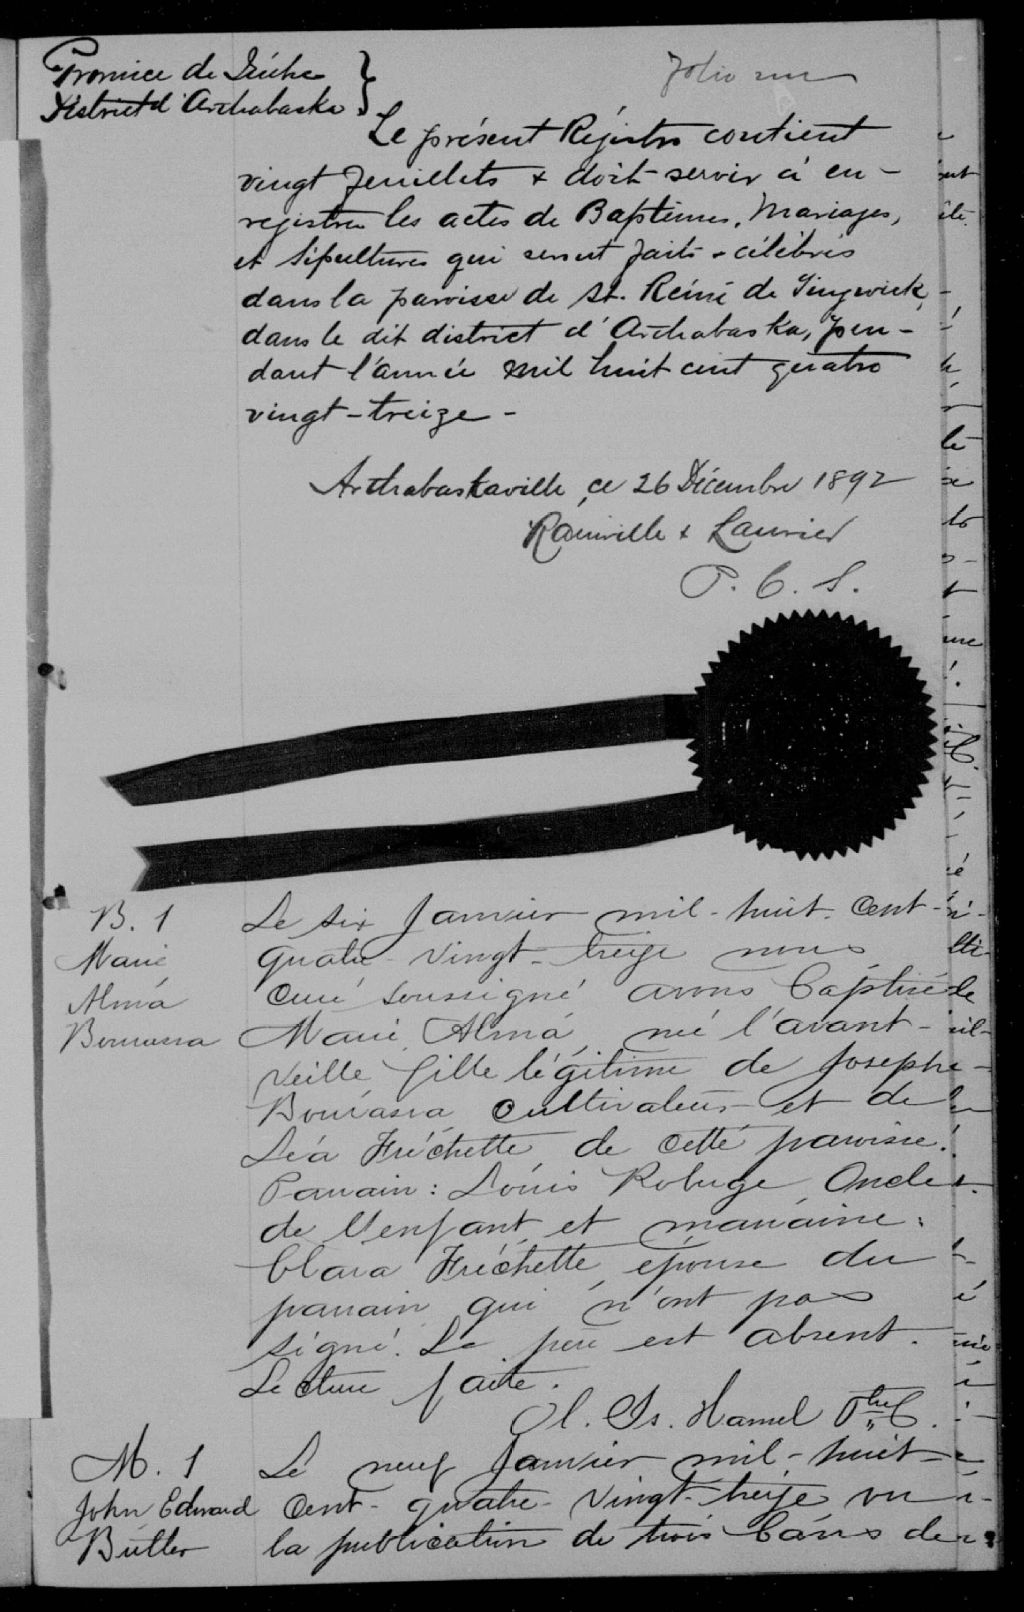 Province de Québec
District d'Arthabaska
Folio un
Le présent Régistre contient
vingt feuillets & doit servir à en-
registrer les actes de Baptêmes, Mariages,
et Sépultures qui seront faits & célébrés
dans la paroisse de St. Rémi de Tingwick,
dans le dit district d'Arthabaska, pen-
dant l'année mil huit cent quatre
vingt-treize -
Arthabaskaville, ce 26 Décembre 1892
Rainville & Laurier
P. C. S.
B. 1
Marie
Alma
Bourassa
Le six Janvier mil-huit-cent-
quatre-vingt-treize nous
curé soussigné avons baptisé
Marie Alma, née l'avant-
veille fille légitime de Joseph
Bourassa cultivateur et de
Léa Fréchette de cette paroisse.
Parrain: Louis Roberge Oncle
de l'enfant et marraine:
Clara Fréchette épouse du
parrain qui n'ont pas
signé. Le père est absent.
Lecture faite.
Ol. Is. Hamel Ptre C.
M. 1
John Edward
Butler
Le neuf Janvier mil-huit-
cent-quatre-vingt-treize vu
la publication de trois bans de